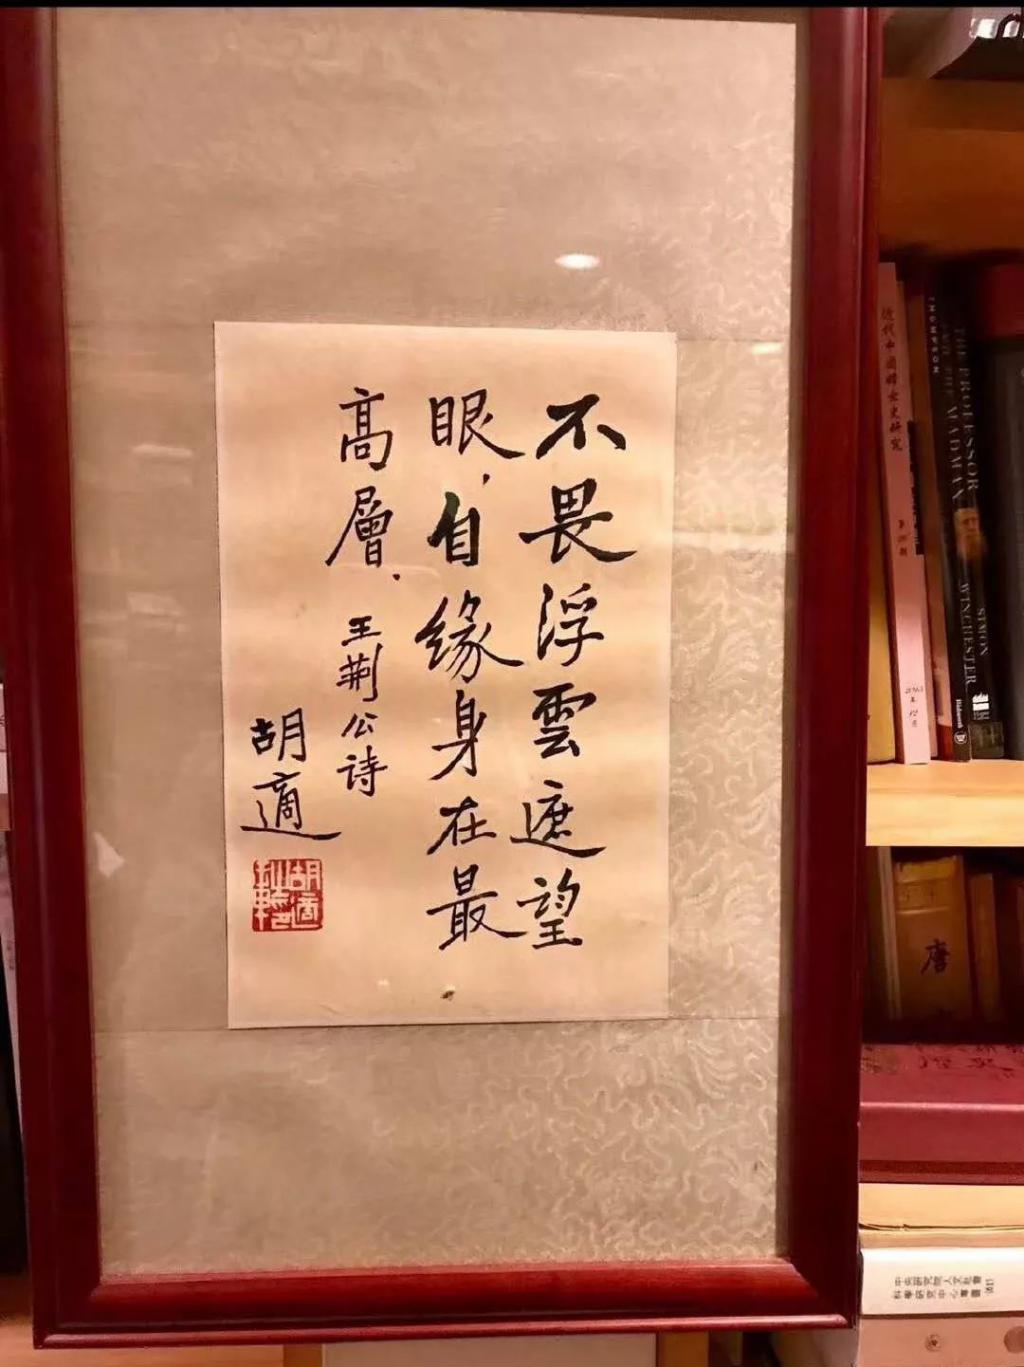 不畏浮雲遮望
眼，自缘身在最
高層．王荆公诗
胡適
近代中國婦女史研究
THOMPSON
THE PROFESSOR
AND THE MADMAN
SIMON
WINCHESTER
唐